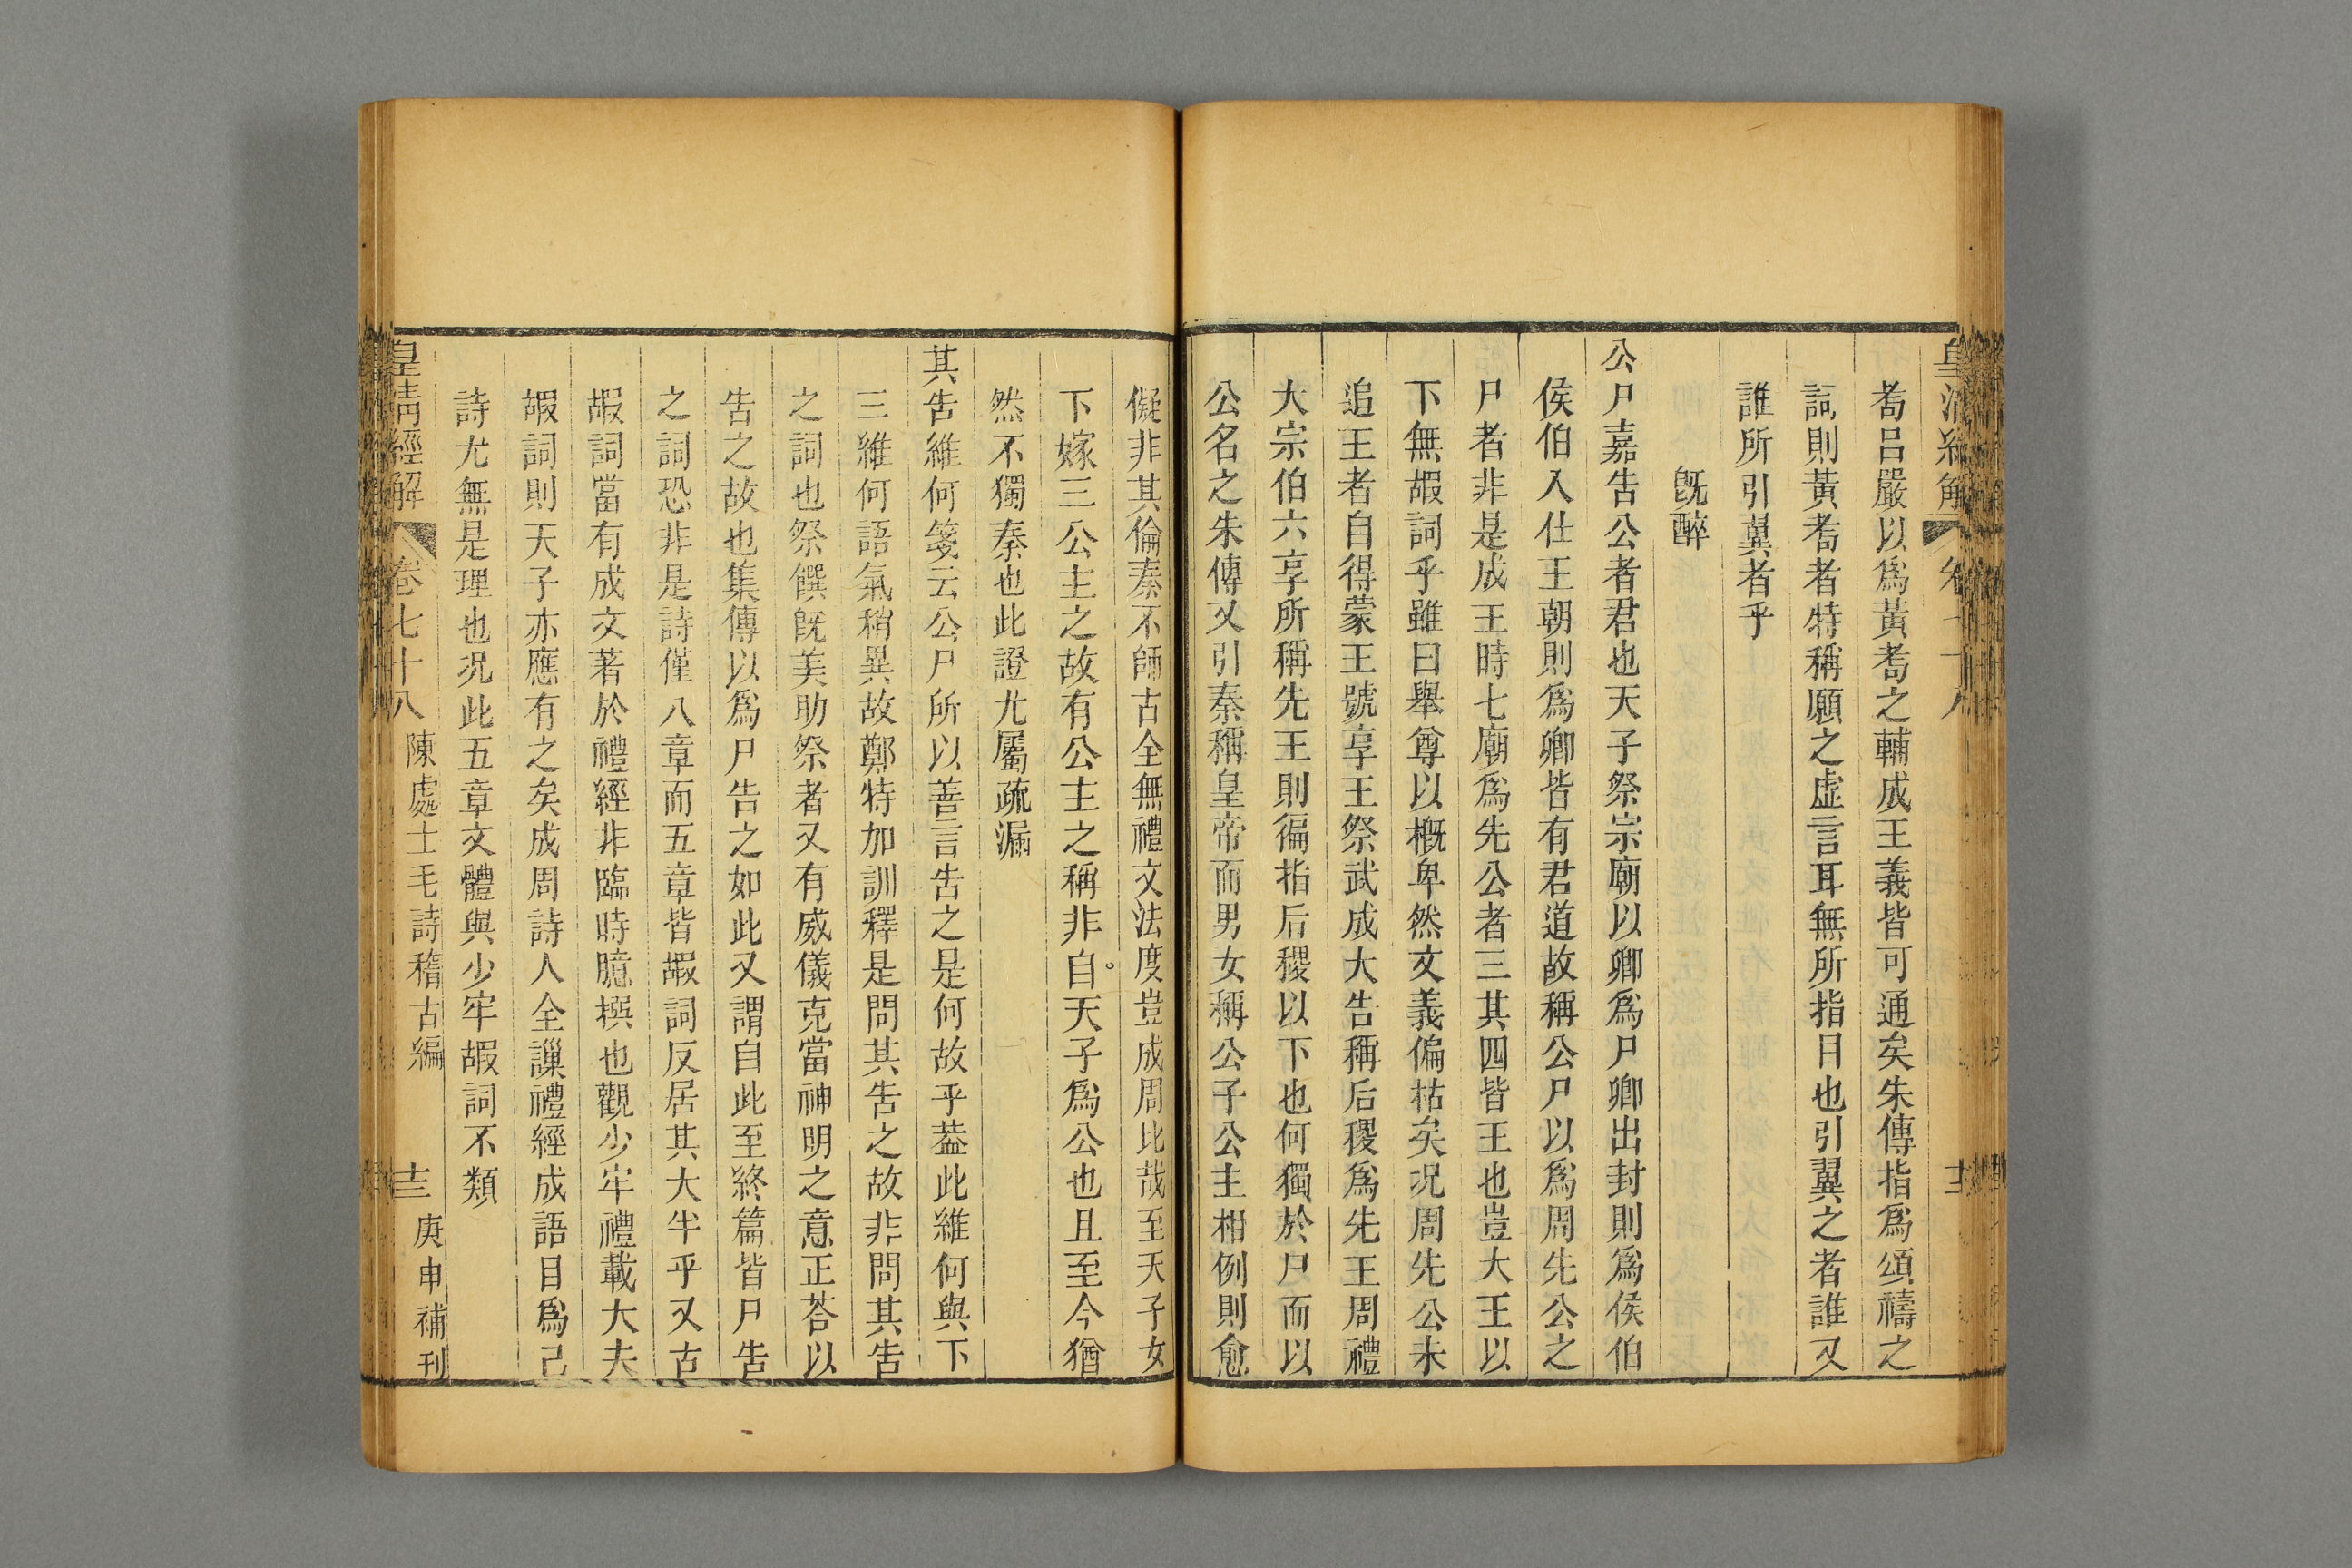 耇呂嚴以爲黃耇之輔成王義皆可通矣朱傳指爲頌禱之
詞則黃耇者特稱願之虛言耳無所指目也引翼之者誰又
誰所引翼者乎
旣醉
公尸嘉告公者君也天子祭宗廟以卿爲尸卿出封則爲侯伯
侯伯入仕王朝則爲卿皆有君道故稱公尸以爲周先公之
尸者非是成王時七廟爲先公者三其四皆王也豈大王以
下無嘏詞乎雖曰舉尊以概卑然文義偏枯矣況周先公未
追王者自得蒙王號享王祭武成大告稱后稷爲先王周禮
大宗伯六享所稱先王則徧指后稷以下也何獨於尸而以
公名之朱傳又引秦稱皇帝而男女稱公子公主相例則愈
儗非其倫秦不師古全無禮文法度豈成周比哉至天子女
下嫁三公主之故有公主之稱非自天子爲公也且至今猶
然不獨秦也此證尤屬疏漏
其告維何箋云公尸所以善言告之是何故乎葢此維何與下
三維何語氣稍異故鄭特加訓釋是問其告之故非問其告
之詞也祭饌旣美助祭者又有威儀克當神明之意正荅以
告之故也集傳以爲尸告之如此又謂自此至終篇皆尸告
之詞恐非是詩僅八章而五章皆嘏詞反居其大半乎又古
嘏詞當有成文著於禮經非臨時臆撰也觀少牢禮載大夫
嘏詞則天子亦應有之矣成周詩人全謙禮經成語目爲己
詩尤無是理也況此五章文體與少牢嘏詞不類
皇清經解
卷七十八
陳處士毛詩稽古編
庚申補刊